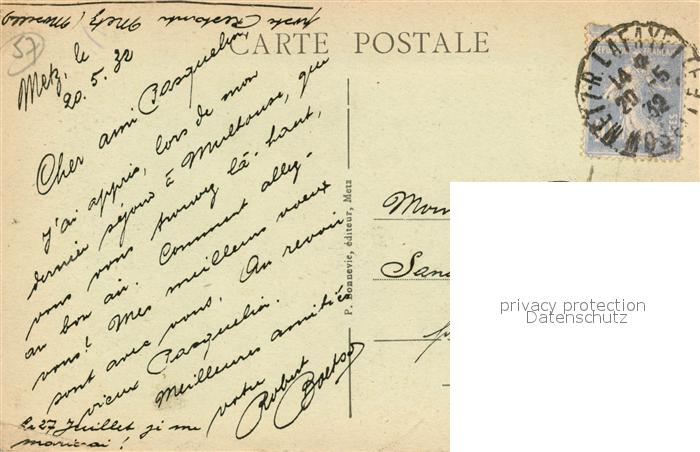 poste restante Metz (Moselle)
57
CARTE POSTALE
Metz, le
20.5.32
Cher ami Pasquelin,
j'ai appris, lors de mon
dernier séjour à Mulhouse, que
vous vous trouvez là-haut,
au bon air. Comment allez-
vous? Mes meilleurs voeux
sont avec vous. Au revoir
vieux Pasquelin.
Meilleures amitiés
votre
Robert
Le 27 Juillet je me
marierai !
P. Bonnevie, éditeur, Metz
METZ R. LAFAYETTE
14
20 -5
32
Mon
San
privacy protection
Datenschutz